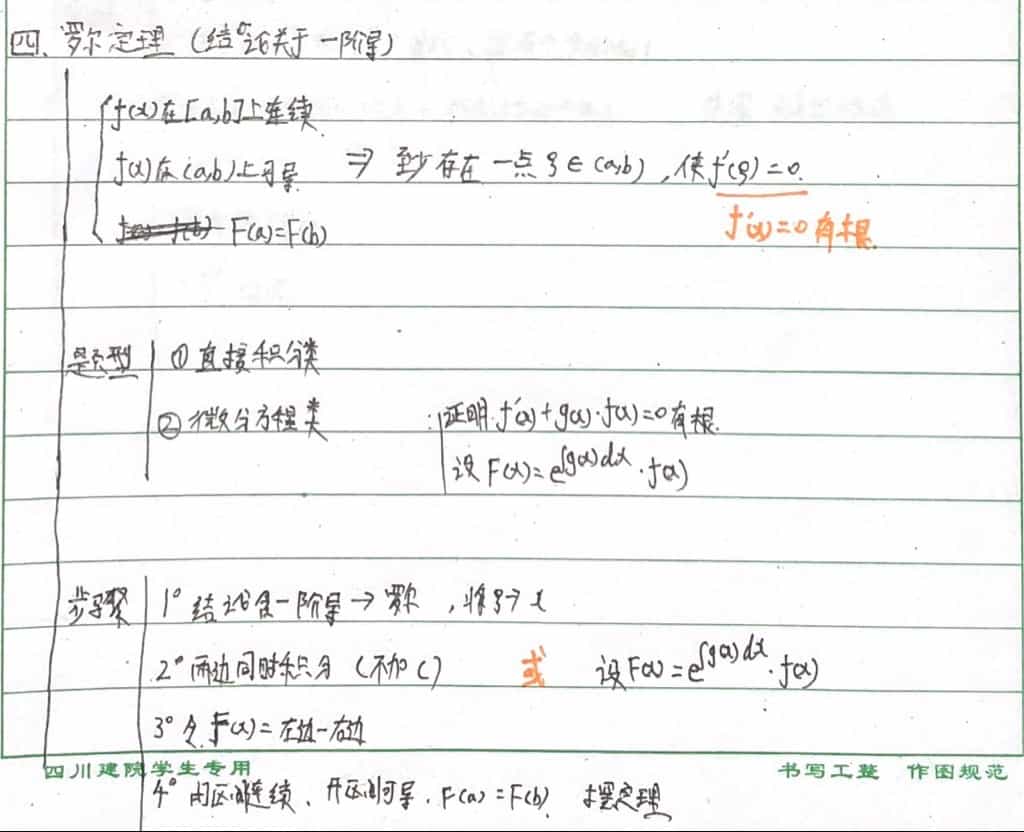 四、罗尔定理（结论关于一阶导）
f(x)在[a,b]上连续
f(x)在(a,b)上可导 ⇒ 至少存在一点ξ∈(a,b)，使f'(ξ)=0.
F(a)=F(b) f'(x)=0有根.
题型 ①直接积分类
②微分方程类* 证明f'(x)+g(x)·f(x)=0有根.
设F(x)=e^{∫g(x)dx}·f(x)
步骤 1° 结论含一阶导→罗尔，将ξ→x
2° 两边同时积分（不加C） 或 设F(x)=e^{∫g(x)dx}·f(x)
3° 令F(x)=左边-右边
四川建院学生专用 书写工整 作图规范
4° 闭区间连续、开区间可导．F(a)=F(b) 摆定理